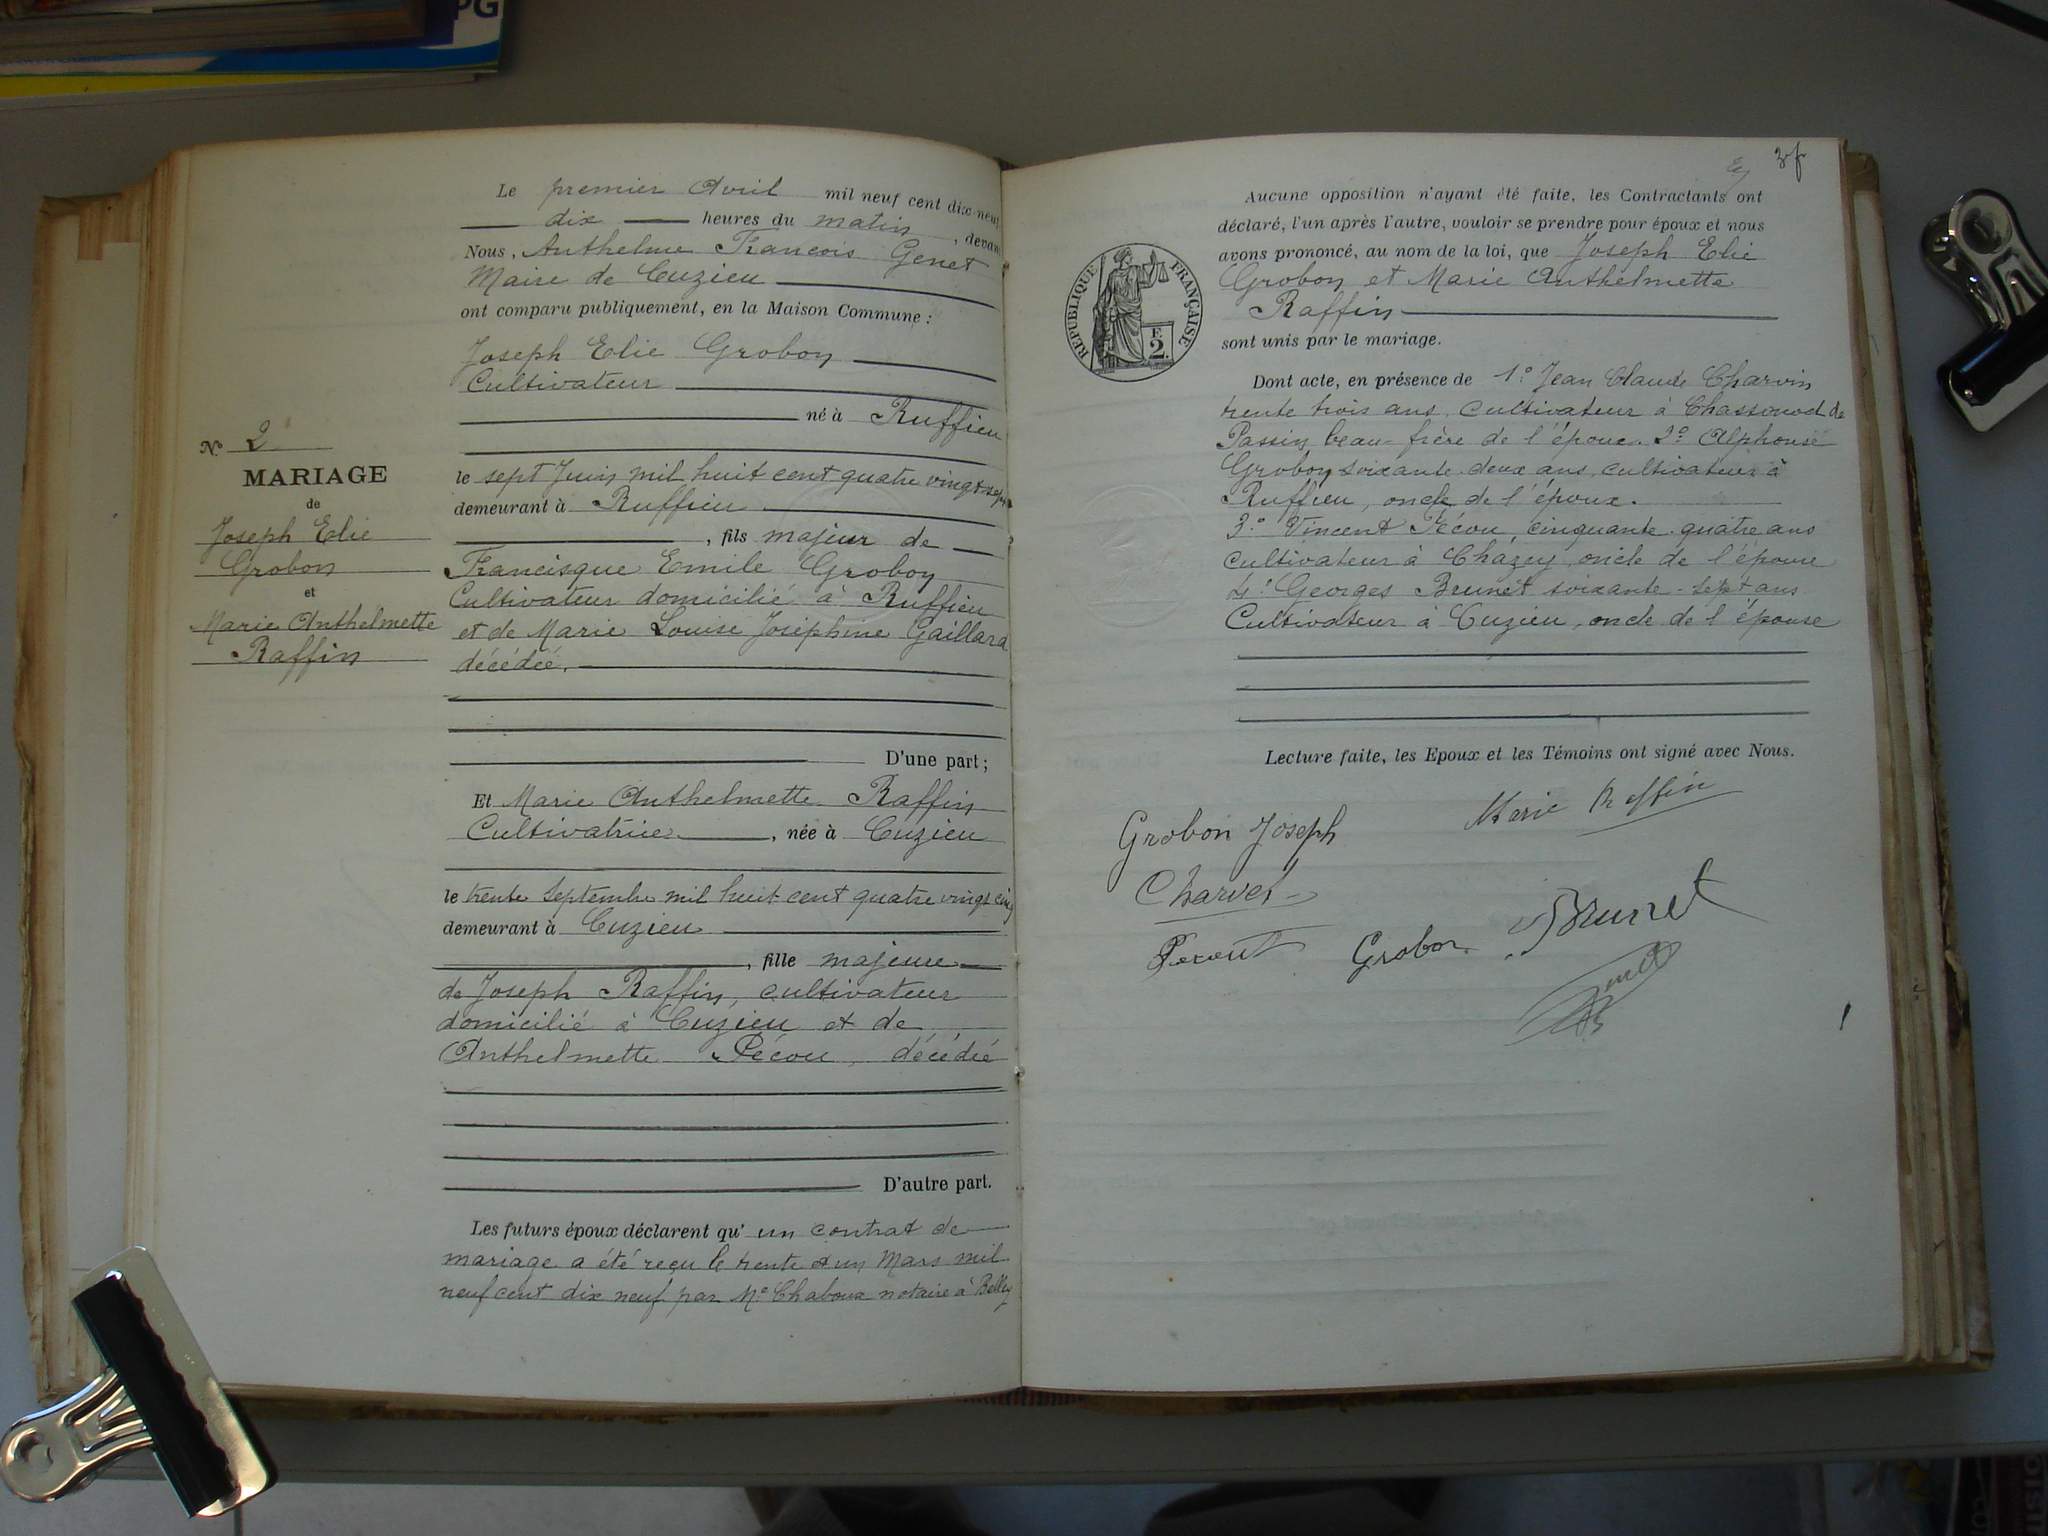 PG
N° 2
MARIAGE
de
Joseph Elie
Grobon
et
Marie Anthelmette
Raffin
Le premier Avril mil neuf cent dix-neuf
dix heures du matin, devant
Nous, Anthelme Francois Genet
Maire de Cuzieu
ont comparu publiquement, en la Maison Commune :
Joseph Elie Grobon
Cultivateur
né à Ruffieu
le sept Juin mil huit cent quatre vingt sept
demeurant à Ruffieu
, fils majeur de
Francisque Emile Grobon
Cultivateur domicilié à Ruffieu
et de Marie Louise Joséphine Gaillard
décédée.
D'une part ;
Et Marie Anthelmette Raffin
Cultivatrice, née à Cuzieu
le trente Septembre mil huit cent quatre vingt cinq
demeurant à Cuzieu
, fille majeure
de Joseph Raffin, cultivateur
domicilié à Cuzieu et de
Anthelmette Pécou, décédée
D'autre part.
Les futurs époux déclarent qu'un contrat de
mariage a été reçu le trente et un Mars mil
neuf cent dix neuf par Me Chaboux notaire à Belley
3f
Aucune opposition n'ayant été faite, les Contractants ont
déclaré, l'un après l'autre, vouloir se prendre pour époux et nous
avons prononcé, au nom de la loi, que Joseph Elie
Grobon et Marie Anthelmette
Raffin
sont unis par le mariage.
RÉPUBLIQUE FRANÇAISE
E
2.
Dont acte, en présence de 1° Jean Claude Charvin
trente trois ans, cultivateur à Chassonod de
Passin beau-frère de l'époux. 2° Alphonse
Grobon soixante deux ans cultivateur à
Ruffieu, oncle de l'époux.
3° Vincent Pécou, cinquante quatre ans
cultivateur à Chazey oncle de l'épouse
4° Georges Brunet soixante-sept ans
Cultivateur à Cuzieu, oncle de l'épouse
Lecture faite, les Epoux et les Témoins ont signé avec Nous.
Grobon Joseph
Marie Raffin
Grobon
Brunet
Genet